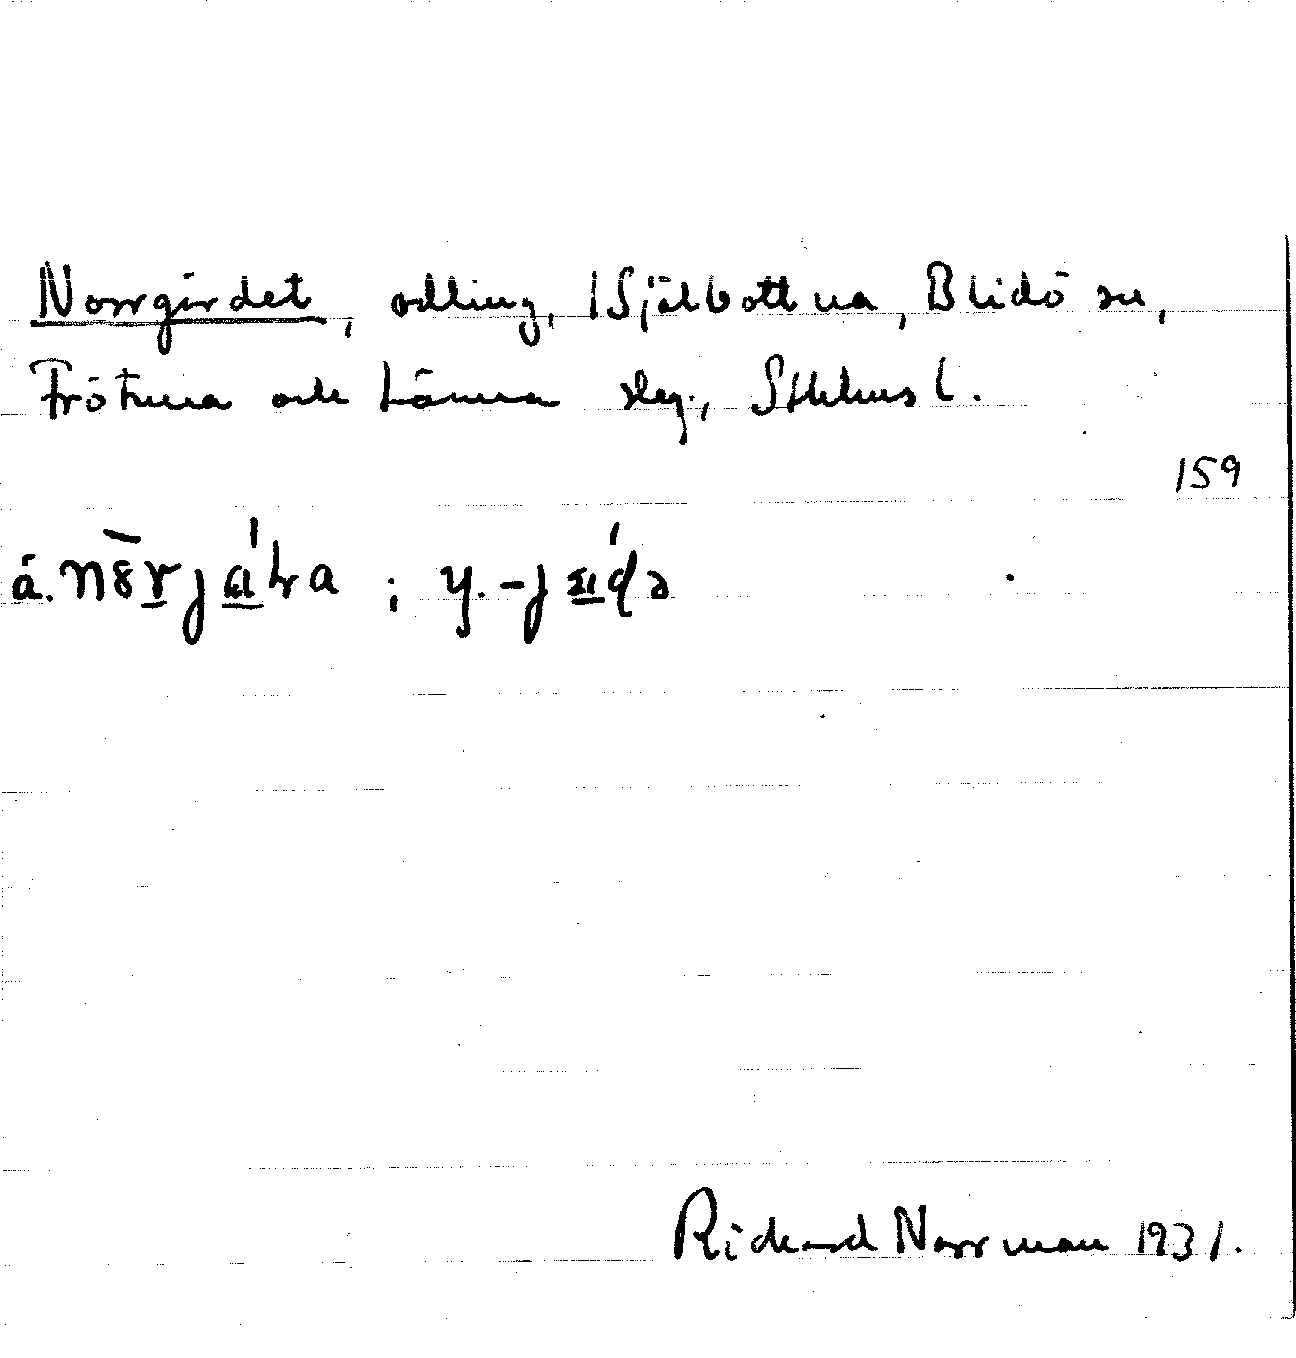 Norrgärdet, odling, Själbottna, Blidö sn,
Frötuna och Länna skg., Sthlms l.
159
ä.
; y.
Rickard Norrman 1931.